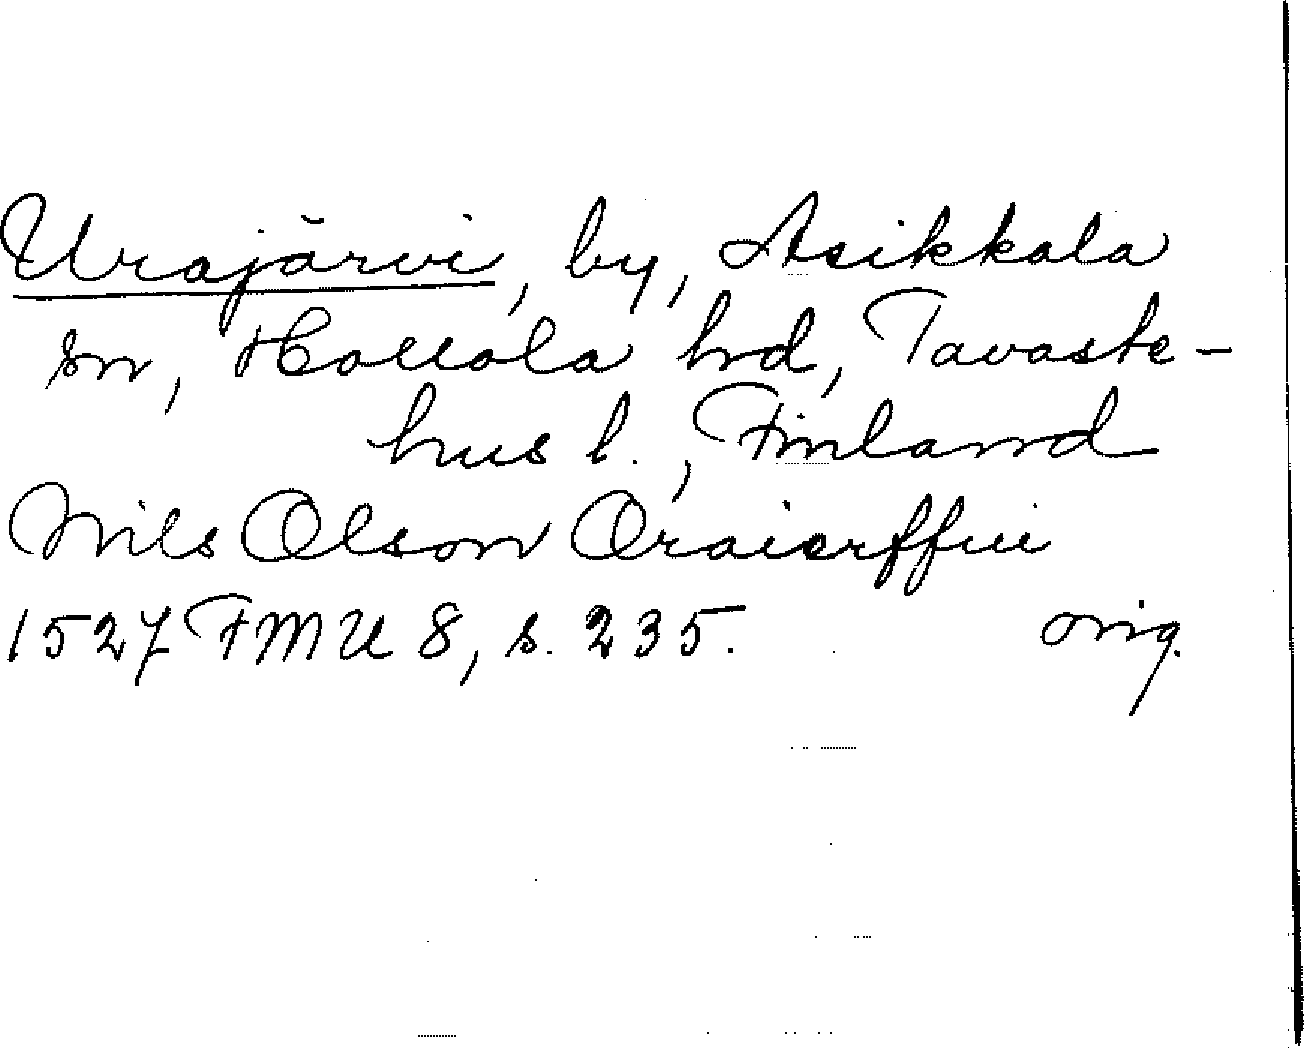 Urajärvi, by, Asikkala
sn, Hollola hrd, Tavaste-
hus l., Finland
Nils Olson Oraierffui
1527 FMU 8, s. 235. orig.